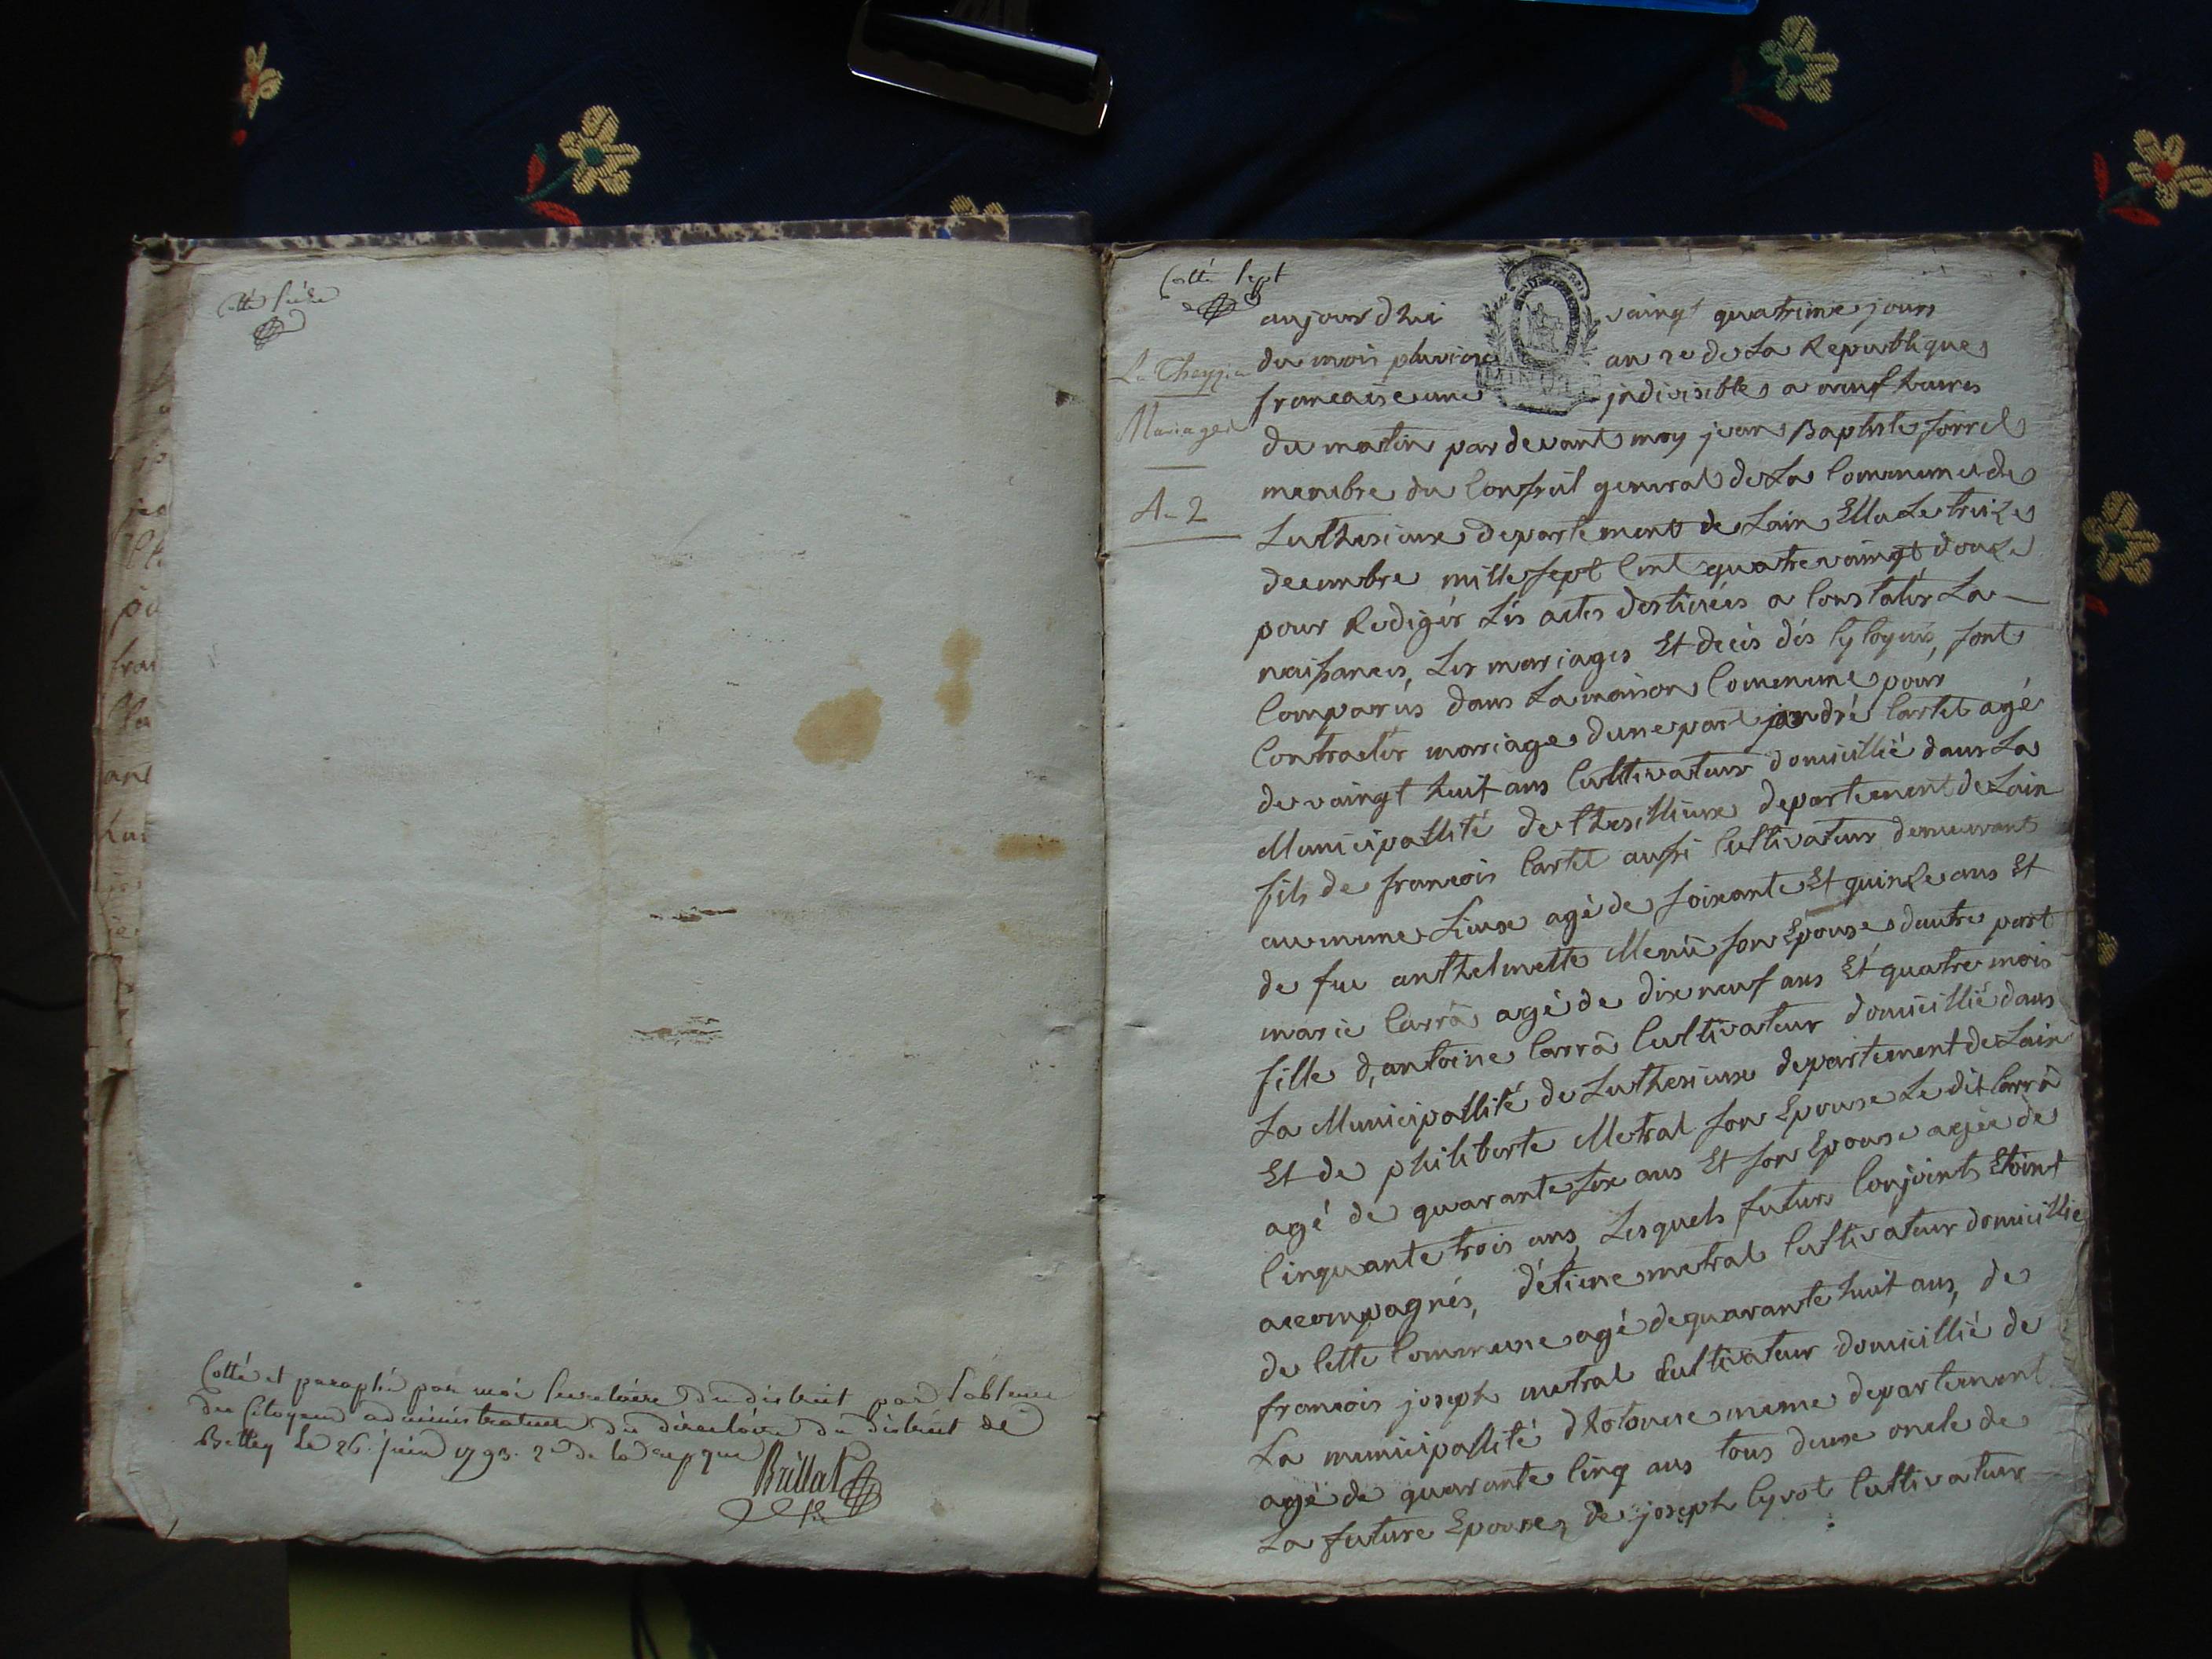 Cotté
Cotté et paraphé par moi secretaire du district par l'absence
des citoyens administrateurs du directoire du district de
Belley le 26 juin 1793. 2e de la repque
Brillat
Cotté sept
Mariages
A-2
aujourdhui vaingt quatrime jours
du mois pluviose an 2e de La Republiques
francaise une indivisibles a neuf heures
du matin par devant moy jean Baptiste
membre du Conseil general de La Commune de
Luthesieux departement de Lain Ellu Le treize
decembre mille sept Cent quatre vaingt douze
pour Redigér Lés actes destinées a Constatér La
naissances, Les mariages Et decés dés Cytoyens, sont
Comparus dans La maison Commune pour
Contractér mariages dune part andré Cartet agé
de vaingt huit ans Cultivateur domicillié dans La
Municipallité de departement de Lain
fils de francois Cartet aussi Cultivateur demeurant
au meme Lieux agé de soixante Et quinze ans Et
de fue anthelmette son Epouse dautre part
marie Carrà agé de dix neuf ans Et quatre mois
fille d,antoine Carrà Cultivateur domicillié dans
La Municipallité de Luthesieux departement de Lain
Et de philiberte Metral son Epouse Le dit Carrà
agé de quarante six ans Et son Epouse agée de
Cinquante trois ans Lesquels futurs Conjoints Etoint
accompagnés, détiene metral Cultivateur domicillié
de Cette Commune agé de quarante huit ans, de
francois joseph metral Cultivateur domicillié de
La municipallité dhotonne meme departement
agé de quarante Cinq ans tous deux oncle de
La future Epouse, de joseph Cyvot Cultivateur